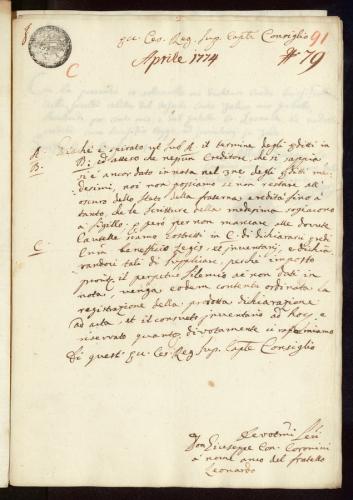 C
qu. Ces. Reg. Sup. Capte Consiglio 91
Aprile 1774 79
A. è spirato sub A il termine degli editti in
B. B: ed atteso che nepiun Creditore, che si sappia
si è ancor dato in nota nel degli editti me-
desimi, noi non possiamo se non restare all'
oscuro dello Stato della fraterna eredità fino a
tanto, che le Scritture della medesima sogiacono
a sigillo, e però per non mancare alle dovute
C. Cautelle siamo Costretti in C. di dichiararsi eredi
Cum beneficio Legis et inventarii, e dichia-
randoci tali di supplicare, perchè imposto
il perpetuo silenzio ai non dati in
nota, venga eodem contentu ordinata la
registrazione della dichiarazione
ad acta, et il consueto inventario ad hoc, e
riservato quanto, divotamente ci
Di quest' qu. Ces. Reg. Sup. Capte Consiglio
Devotmi
Don Giuseppe Con. Coronini
a nome anco del fratello
Leonardo